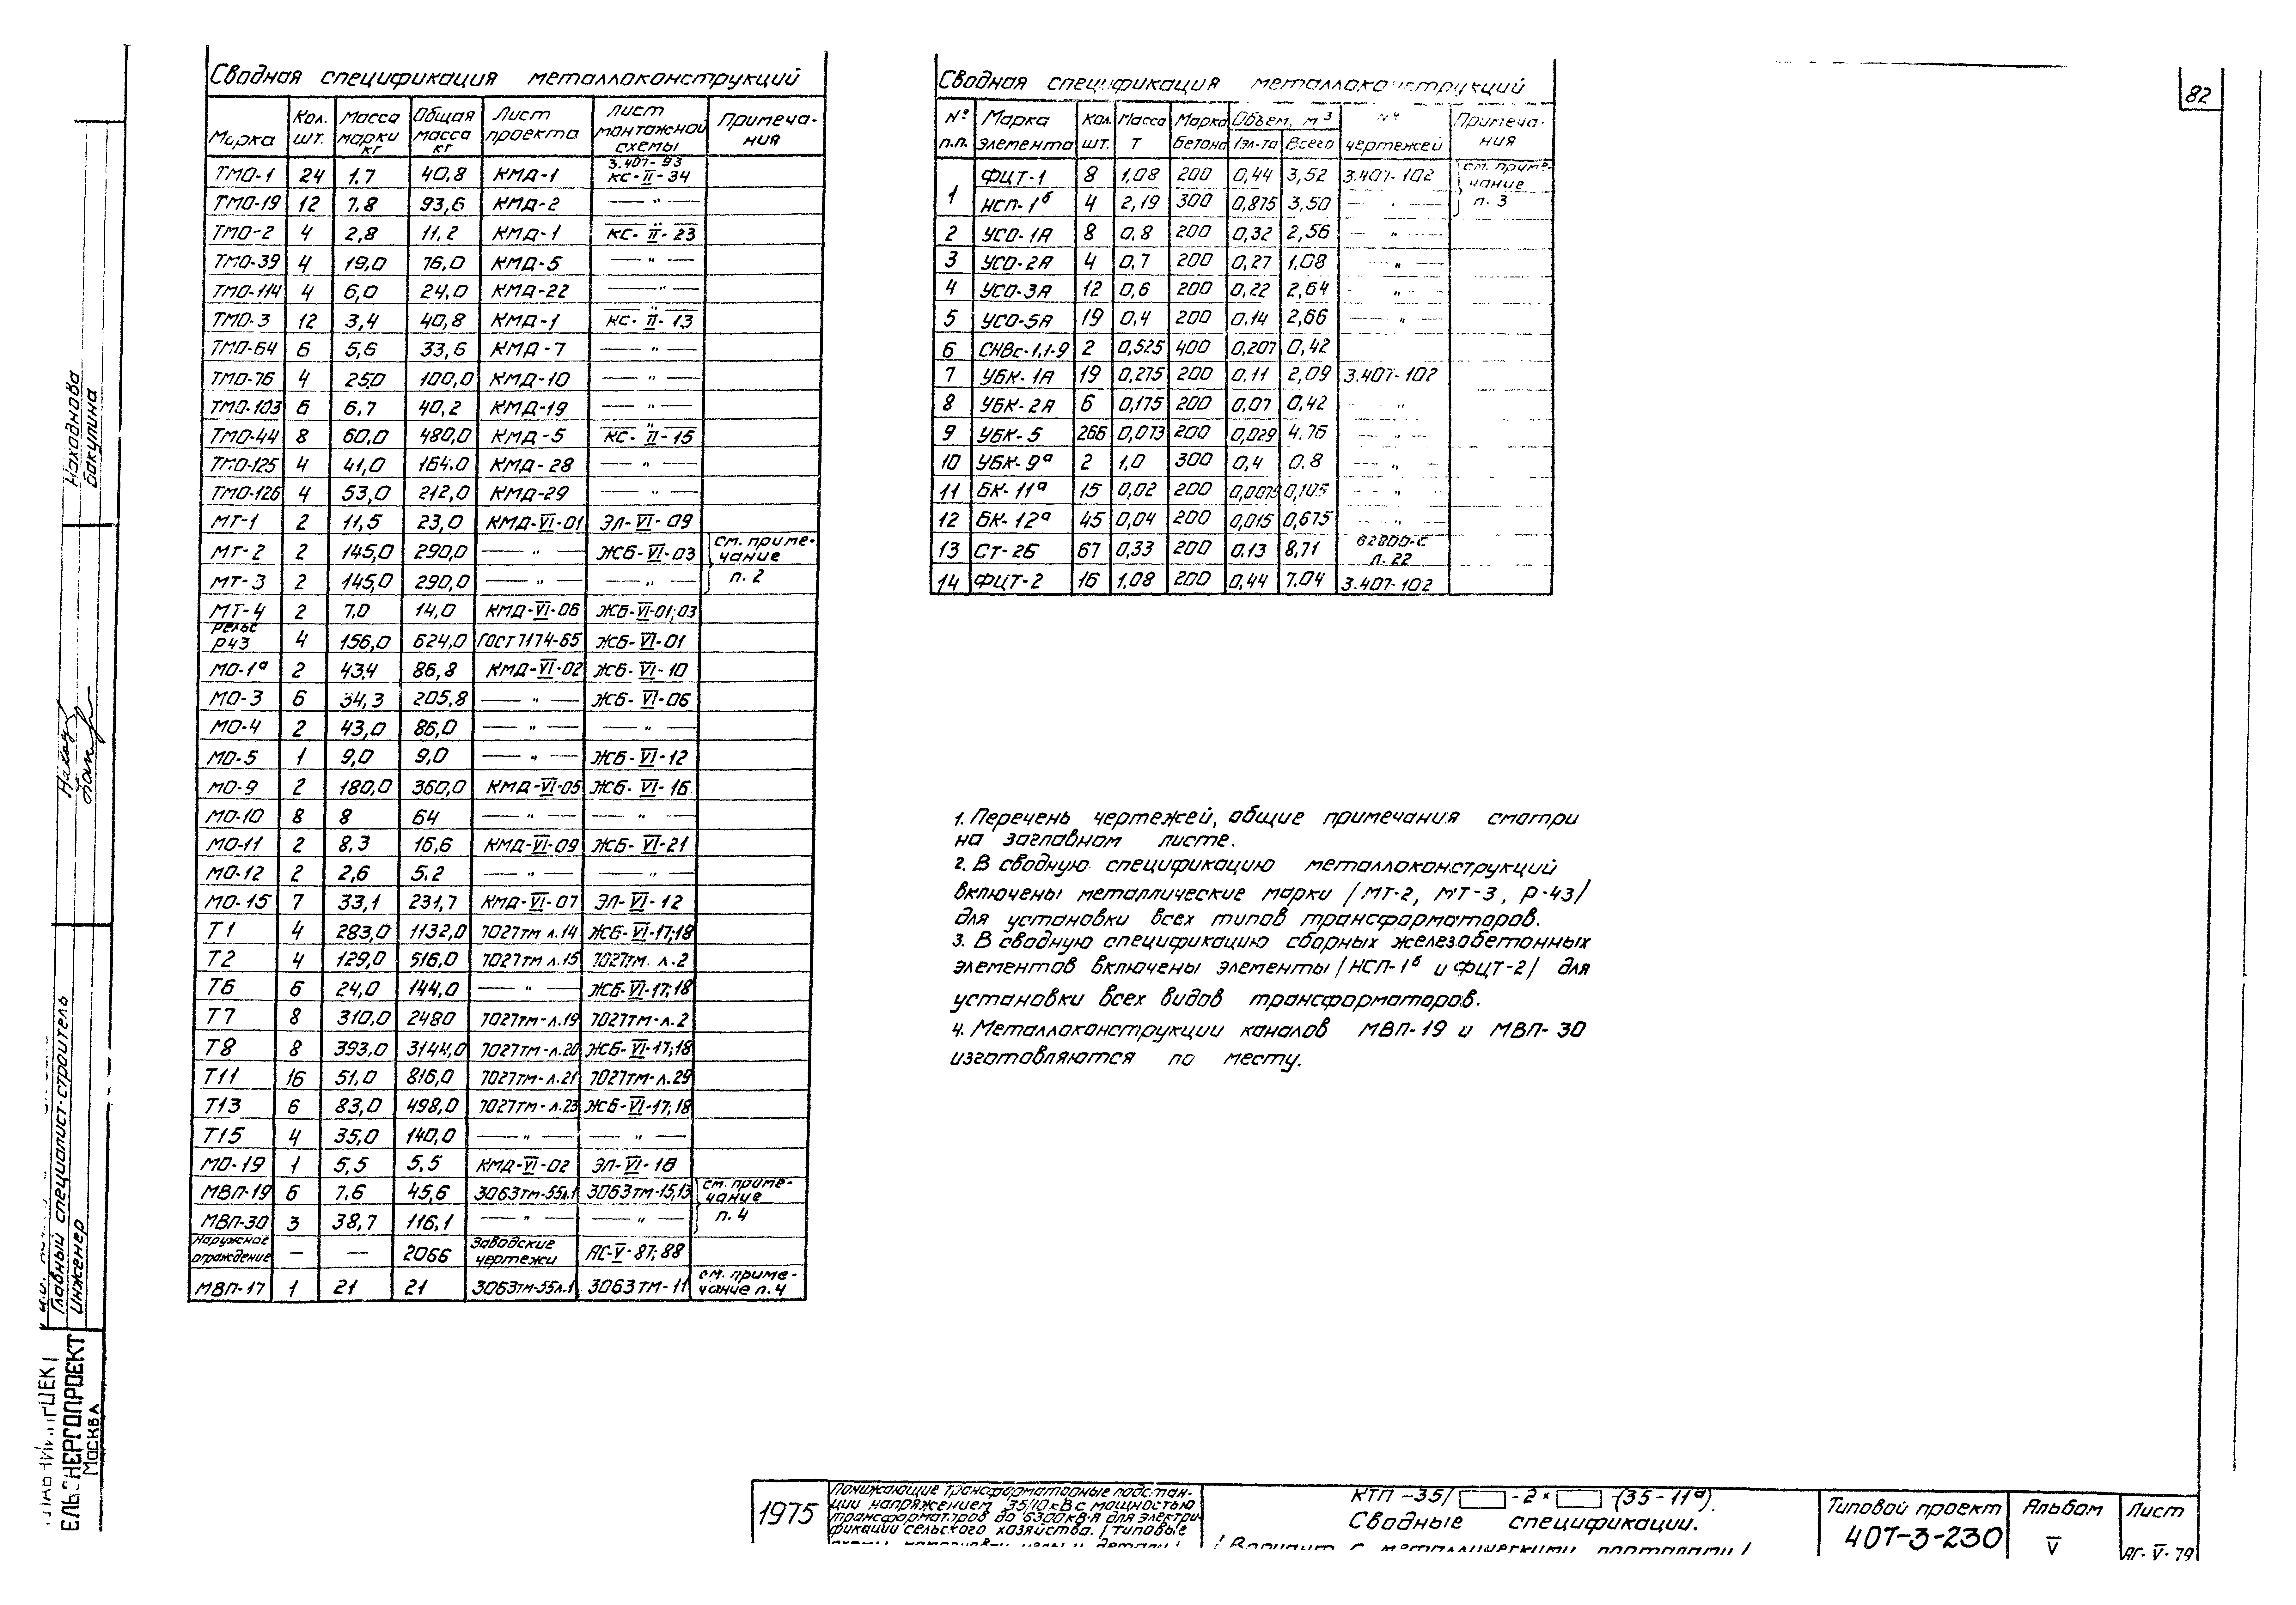 82
Сводная спецификация металлоконструкций
Марка | Кол. шт. | Масса марки кг | Общая масса кг | Лист проекта | Лист монтажной схемы | Примеча-ния
ТМО-1 24 1.7 40,8 КМД-1 3.407-93 КС-II-34
ТМО-19 12 7.8 93,6 КМД-2 — " —
ТМО-2 4 2,8 11,2 КМД-1 КС-II-23
ТМО-39 4 19,0 76,0 КМД-5 — " —
ТМО-114 4 6,0 24,0 КМД-22 — " —
ТМО-3 12 3,4 40,8 КМД-1 КС-II-13
ТМО-64 6 5,6 33,6 КМД-7 — " —
ТМО-76 4 25,0 100,0 КМД-10 — " —
ТМО-103 6 6,7 40,2 КМД-19 — " —
ТМО-44 8 60,0 480,0 КМД-5 КС-II-15
ТМО-125 4 41,0 164,0 КМД-28 — " —
ТМО-126 4 53,0 212,0 КМД-29 — " —
МТ-1 2 11,5 23,0 КМД-VI-01 ЭЛ-VI-09
МТ-2 2 145,0 290,0 — " — ЖБ-VI-03 см. приме-чание
МТ-3 2 145,0 290,0 — " — — " — п. 2
МТ-4 2 7,0 14,0 КМД-VI-06 ЖБ-VI-01;03
рельс Р43 4 156,0 624,0 ГОСТ 7174-65 ЖБ-VI-01
МО-1ª 2 43,4 86,8 КМД-VI-02 ЖБ-VI-10
МО-3 6 34,3 205,8 — " — ЖБ-VI-06
МО-4 2 43,0 86,0 — " — — " —
МО-5 1 9,0 9,0 — " — ЖБ-VI-12
МО-9 2 180,0 360,0 КМД-VI-05 ЖБ-VI-16
МО-10 8 8 64 — " — — " —
МО-11 2 8,3 16,6 КМД-VI-09 ЖБ-VI-21
МО-12 2 2,6 5,2 — " — — " —
МО-15 7 33,1 231,7 КМД-VI-07 ЭЛ-VI-12
Т1 4 283,0 1132,0 7027тм л.14 ЖБ-VI-17;18
Т2 4 129,0 516,0 7027тм л.15 7027тм. л.2
Т6 6 24,0 144,0 — " — ЖБ-VI-17;18
Т7 8 310,0 2480 7027тм-л.19 7027тм-л.2
Т8 8 393,0 3144,0 7027тм-л.20 ЖБ-VI-17;18
Т11 16 51,0 816,0 7027тм-л.21 7027тм-л.29
Т13 6 83,0 498,0 7027тм-л.23 ЖБ-VI-17;18
Т15 4 35,0 140,0 — " — — " —
МО-19 1 5,5 5,5 КМД-VI-02 ЭЛ-VI-18
МВП-19 6 7,6 45,6 3063тм-55л.1 3063тм-15,13 см. приме-чание
МВП-30 3 38,7 116,1 — " — — " — п. 4
Наружное ограждение — — 2066 Заводские чертежи АС-V-87;88
МВП-17 1 21 21 3063тм-55л.1 3063тм-11 см. приме-чание п.4
Сводная спецификация металлоконструкций
№ п.п. | Марка элемента | Кол. шт. | Масса Т | Марка бетона | Объем, м³ 1эл-та | Всего | № чертежей | Примеча-ния
1 ФЦТ-1 8 1,08 200 0,44 3,52 3.407-102 см. приме-чание
НСП-1ᵟ 4 2,19 300 0,875 3,50 — " — п. 3
2 УСО-1А 8 0,8 200 0,32 2,56 — " —
3 УСО-2А 4 0,7 200 0,27 1,08 — " —
4 УСО-3А 12 0,6 200 0,22 2,64 — " —
5 УСО-5А 19 0,4 200 0,14 2,66 — " —
6 СНВс-1,1-9 2 0,525 400 0,207 0,42
7 УБК-1А 19 0,275 200 0,11 2,09 3.407-102
8 УБК-2А 6 0,175 200 0,07 0,42 "
9 УБК-5 266 0,073 200 0,029 4,76 — " —
10 УБК-9ª 2 1,0 300 0,4 0.8 — " —
11 БК-11ª 15 0,02 200 0,0075 0,105 — " —
12 БК-12ª 45 0,04 200 0,015 0,675 — " —
13 СТ-26 67 0,33 200 0.13 8,71 п. 22
14 ФЦТ-2 16 1,08 200 0,44 7,04 3.407-102
1. Перечень чертежей, общие примечания смотри
на заглавном листе.
2. В сводную спецификацию металлоконструкций
включены металлические марки /МТ-2, МТ-3, Р-43/
для установки всех типов трансформаторов.
3. В сводную спецификацию сборных железобетонных
элементов включены элементы /НСП-1ᵟ и ФЦТ-2/ для
установки всех видов трансформаторов.
4. Металлоконструкции каналов МВП-19 и МВП-30
изготовляются по месту.
Находнова
Бакулина
Главный специалист-строитель
Инженер
Москва
1975
Понижающие трансформаторные подстан-
ции напряжением 35/10кВ с мощностью
трансформаторов до 6300кВ·А для электри-
фикации сельского хозяйства. /типовые
схемы, компоновки, узлы и детали/
КТП-35/ -2× -(35-11ª).
Сводные спецификации.
/Вариант с металлическими порталами/
Типовой проект
407-3-230
Альбом
V
Лист
АС-V-79